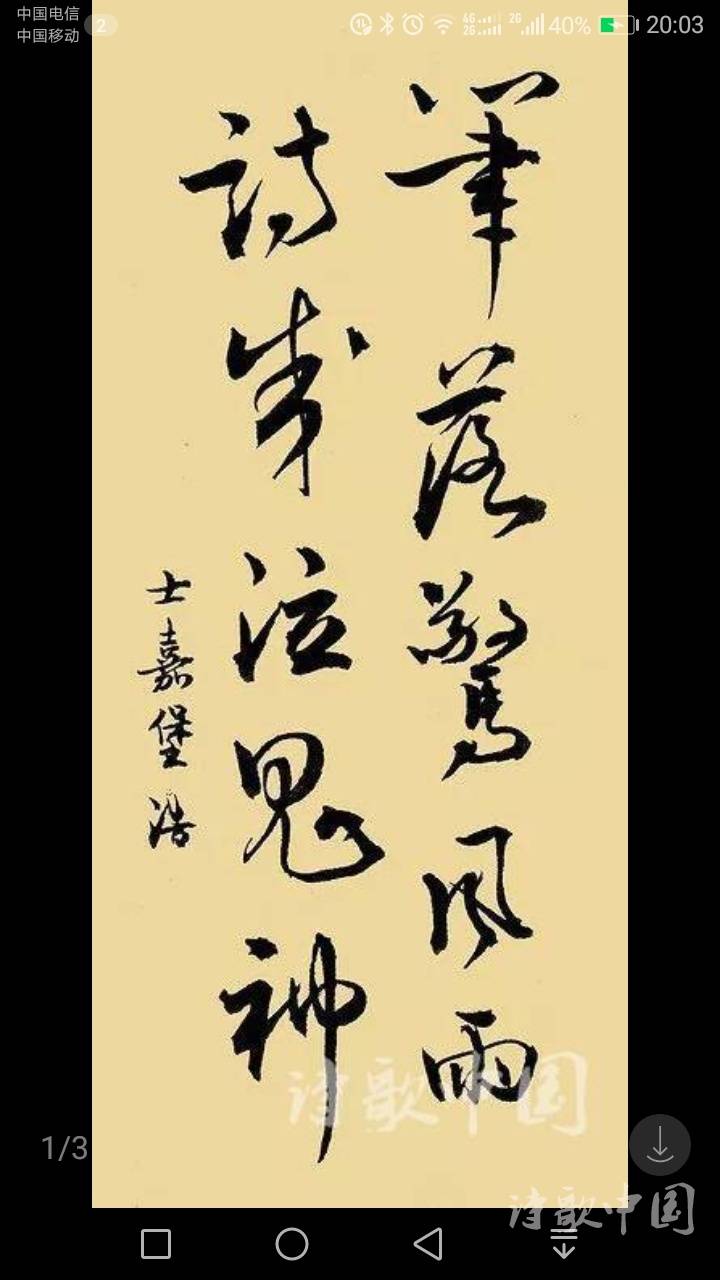 中国电信
中国移动
2
4G
2G
2G
40%
20:03
筆落驚風雨
詩成泣鬼神
士嘉堡 浩
诗歌中国
1/3
诗歌中国